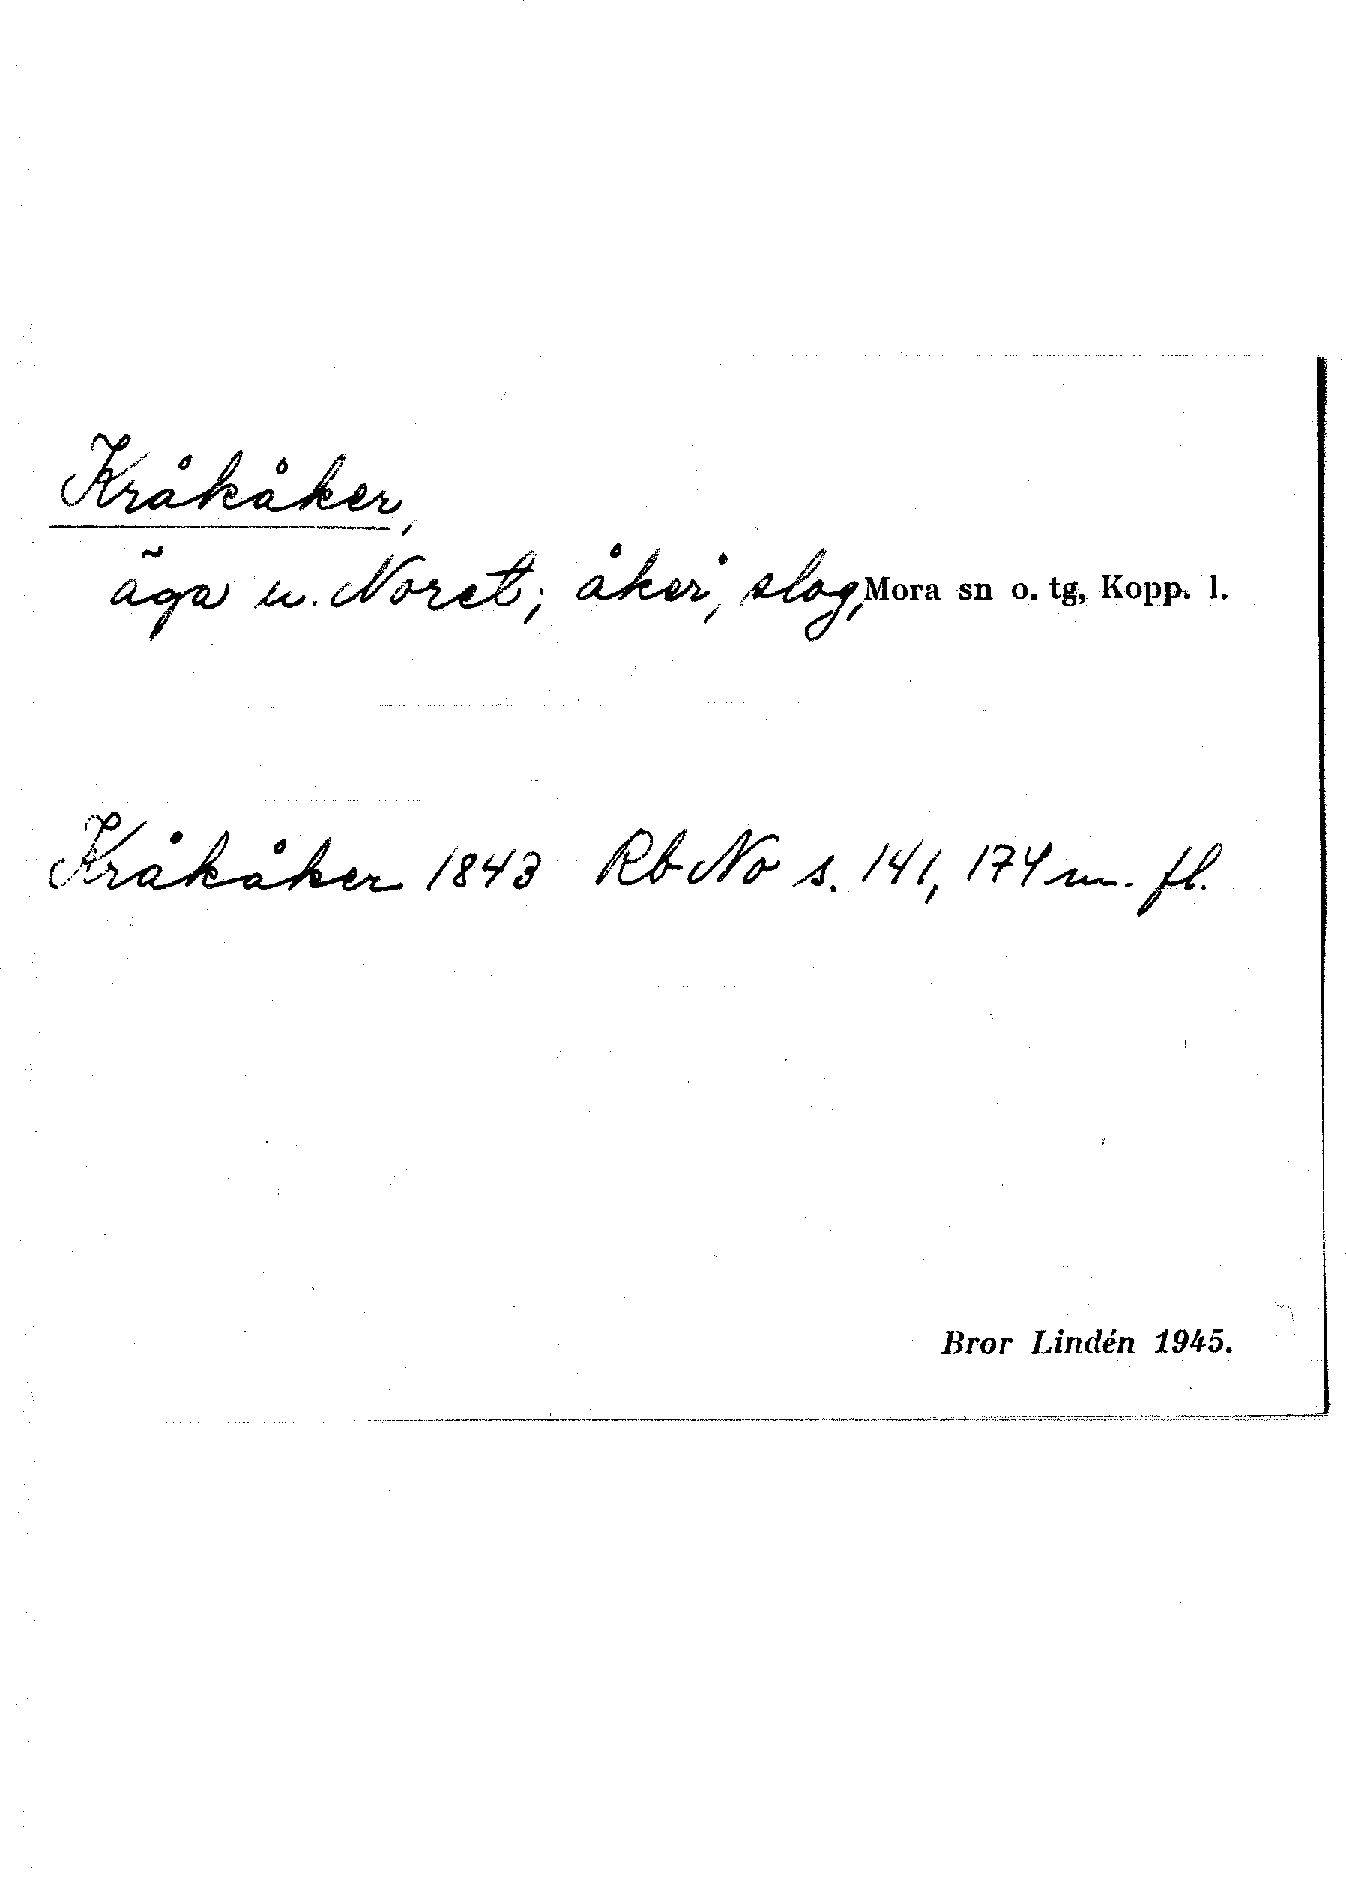 Kråkåker,
äga u. Noret; åker, slog, Mora sn o. tg, Kopp. l.
Kråkåker 1843 Rb No s. 141, 174 m. fl.
Bror Lindén 1945.